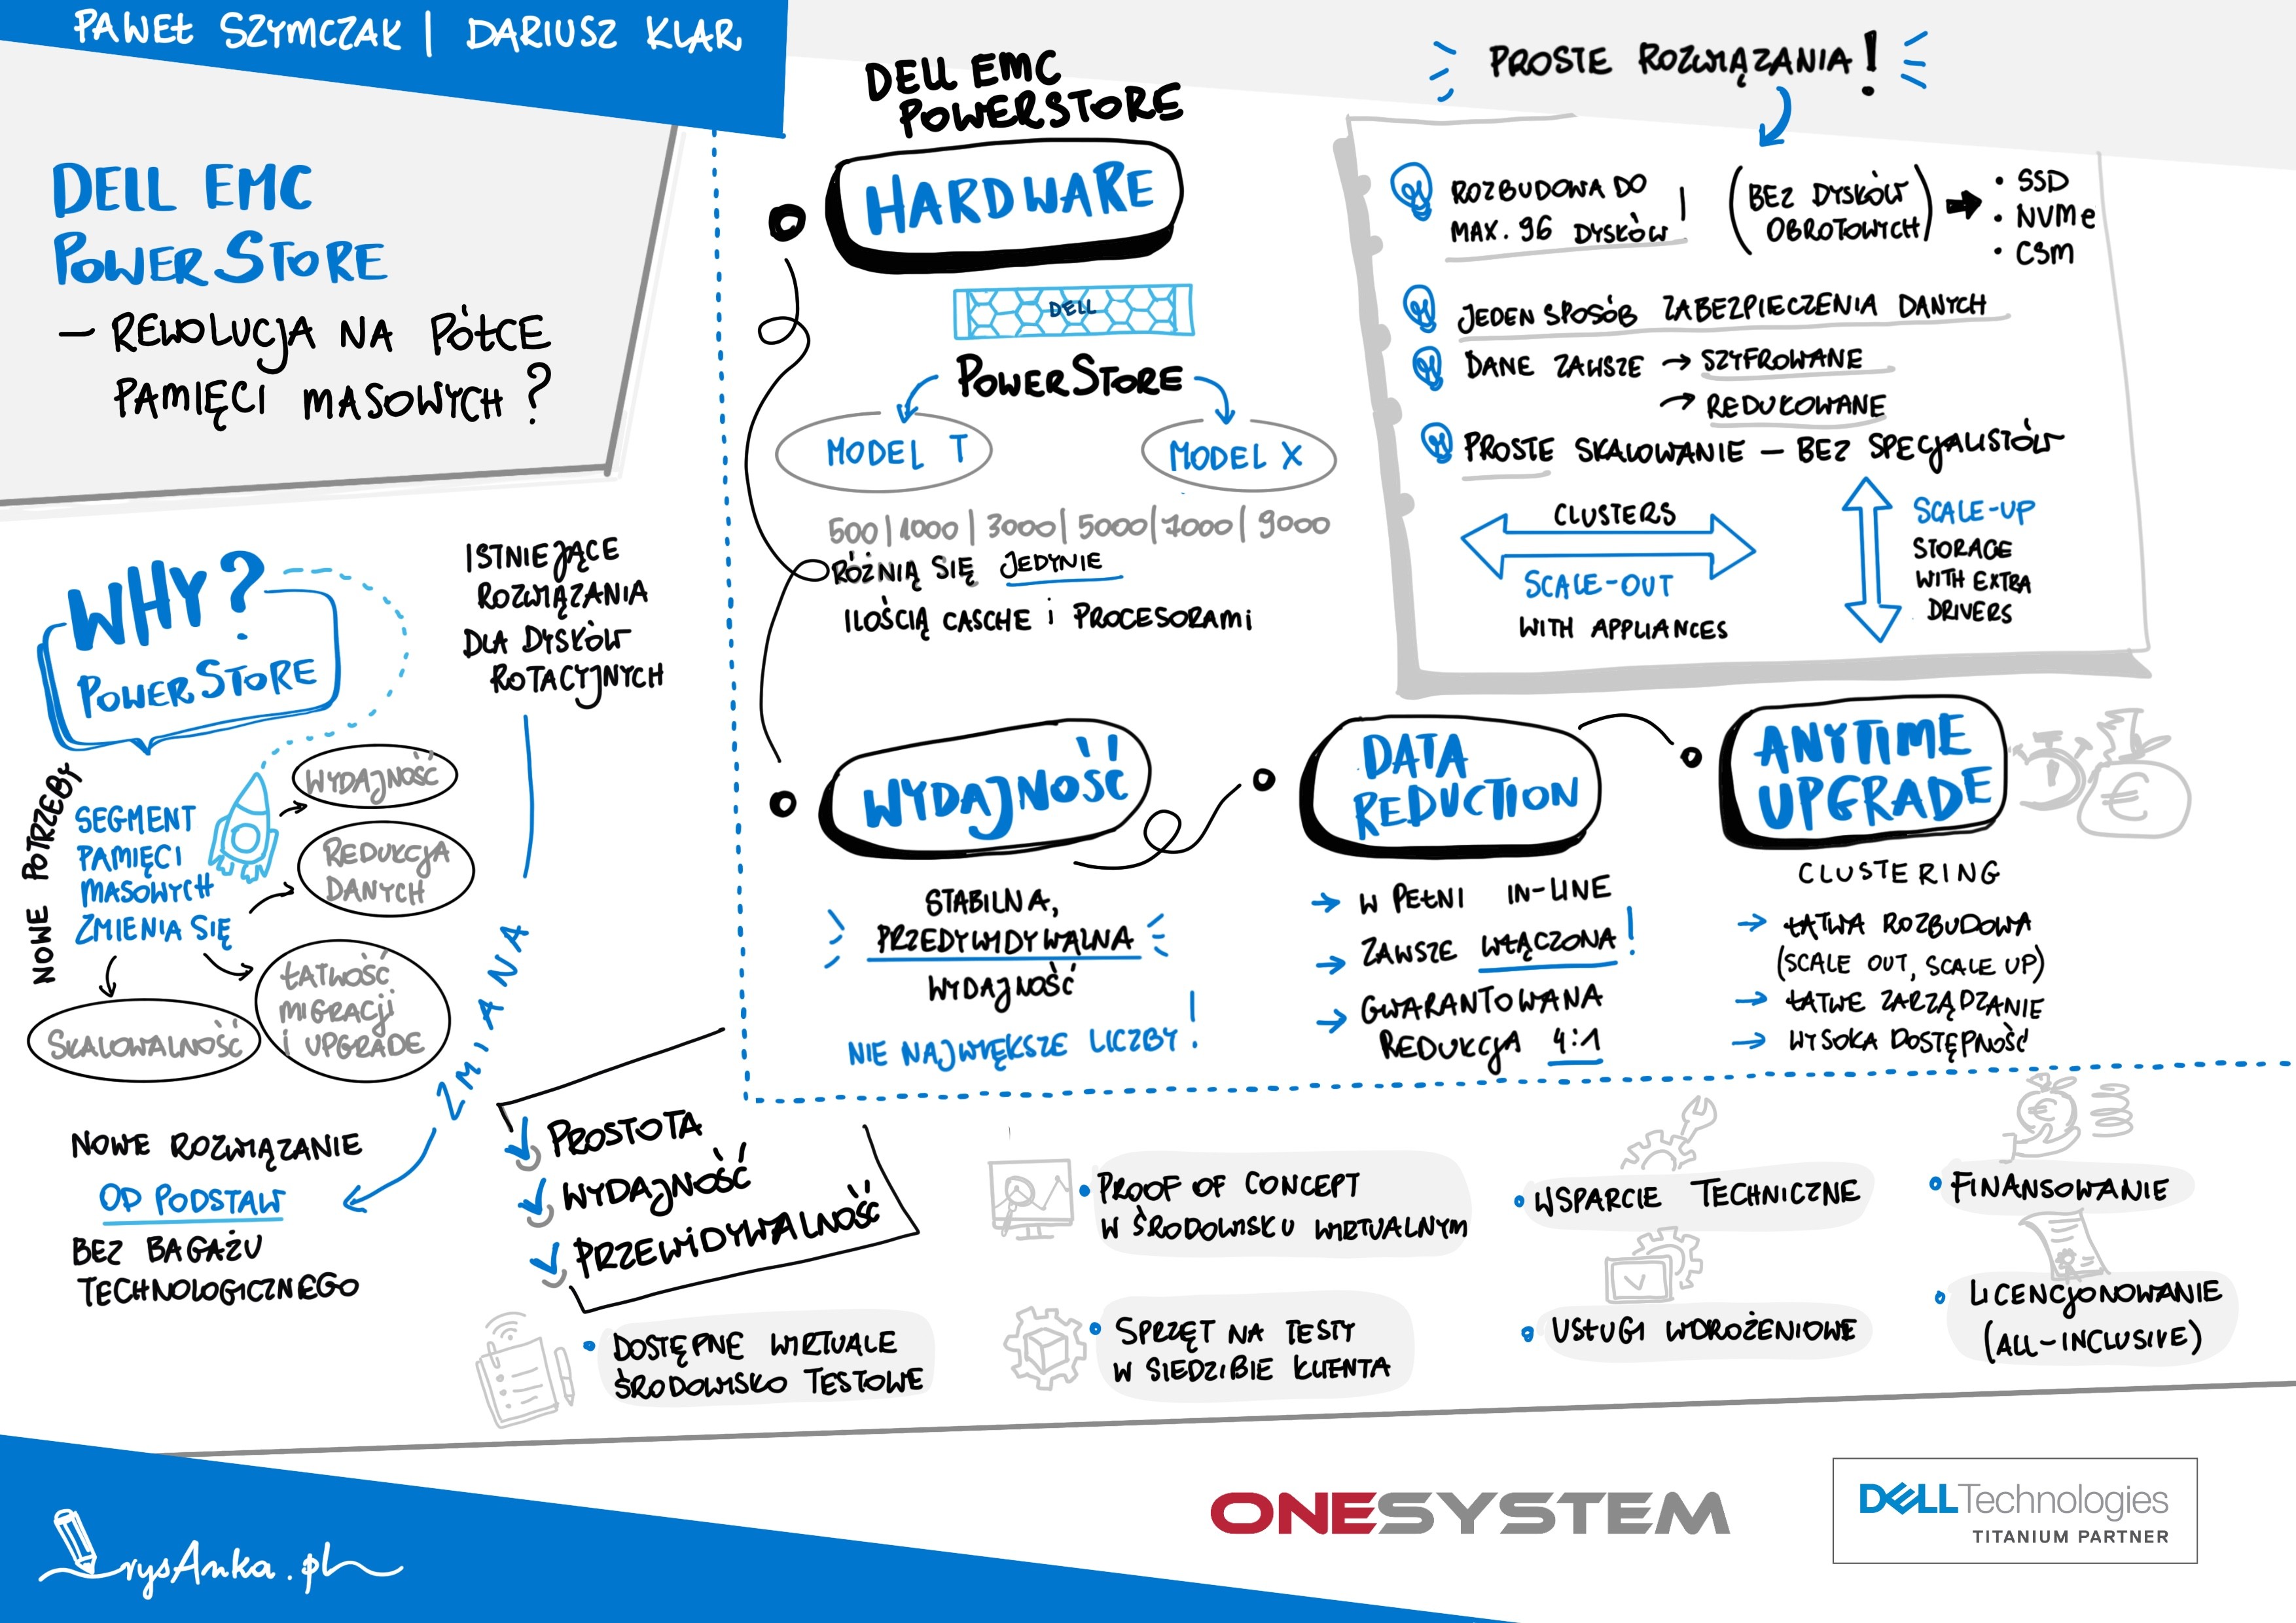 PAWEŁ SZYMCZAK | DARIUSZ KLAR
DELL EMC
POWERSTORE
– REWOLUCJA NA PÓŁCE
PAMIĘCI MASOWYCH?
WHY?
POWERSTORE
ISTNIEJĄCE
ROZWIĄZANIA
DLA DYSKÓW
ROTACYJNYCH
NOWE POTRZEBY
SEGMENT
PAMIĘCI
MASOWYCH
ZMIENIA SIĘ
WYDAJNOŚĆ
REDUKCJA
DANYCH
ŁATWOŚĆ
MIGRACJI
I UPGRADE
SKALOWALNOŚĆ
ZMIANA
NOWE ROZWIĄZANIE
OD PODSTAW
BEZ BAGAŻU
TECHNOLOGICZNEGO
DELL EMC
POWERSTORE
HARDWARE
DELL
POWERSTORE
MODEL T
MODEL X
500 | 1000 | 3000 | 5000 | 7000 | 9000
RÓŻNIĄ SIĘ JEDYNIE
ILOŚCIĄ CASCHE i PROCESORAMI
PROSTE ROZWIĄZANIA!
ROZBUDOWA DO
MAX. 96 DYSKÓW!
(BEZ DYSKÓW
OBROTOWYCH)
• SSD
• NVMe
• CSM
JEDEN SPOSÓB ZABEZPIECZENIA DANYCH
DANE ZAWSZE → SZYFROWANE
→ REDUKOWANE
PROSTE SKALOWANIE – BEZ SPECJALISTÓW
CLUSTERS
SCALE-OUT
WITH APPLIANCES
SCALE-UP
STORAGE
WITH EXTRA
DRIVERS
WYDAJNOŚĆ
STABILNA,
PRZEDYWIDYWALNA
WYDAJNOŚĆ
NIE NAJWIĘKSZE LICZBY!
DATA
REDUCTION
→ W PEŁNI IN-LINE
→ ZAWSZE WŁĄCZONA!
→ GWARANTOWANA
REDUKCJA 4:1
ANYTIME
UPGRADE
€
CLUSTERING
→ ŁATWA ROZBUDOWA
(SCALE OUT, SCALE UP)
→ ŁATWE ZARZĄDZANIE
→ WYSOKA DOSTĘPNOŚĆ
PROSTOTA
WYDAJNOŚĆ
PRZEWIDYWALNOŚĆ
• DOSTĘPNE WIRTUALE
ŚRODOWISKO TESTOWE
• PROOF OF CONCEPT
W ŚRODOWISKU WIRTUALNYM
• SPRZĘT NA TESTY
W SIEDZIBIE KLIENTA
• WSPARCIE TECHNICZNE
• USŁUGI WDROŻENIOWE
€
• FINANSOWANIE
• LICENCJONOWANIE
(ALL-INCLUSIVE)
rysAnka.pl
ONESYSTEM
DELLTechnologies
TITANIUM PARTNER